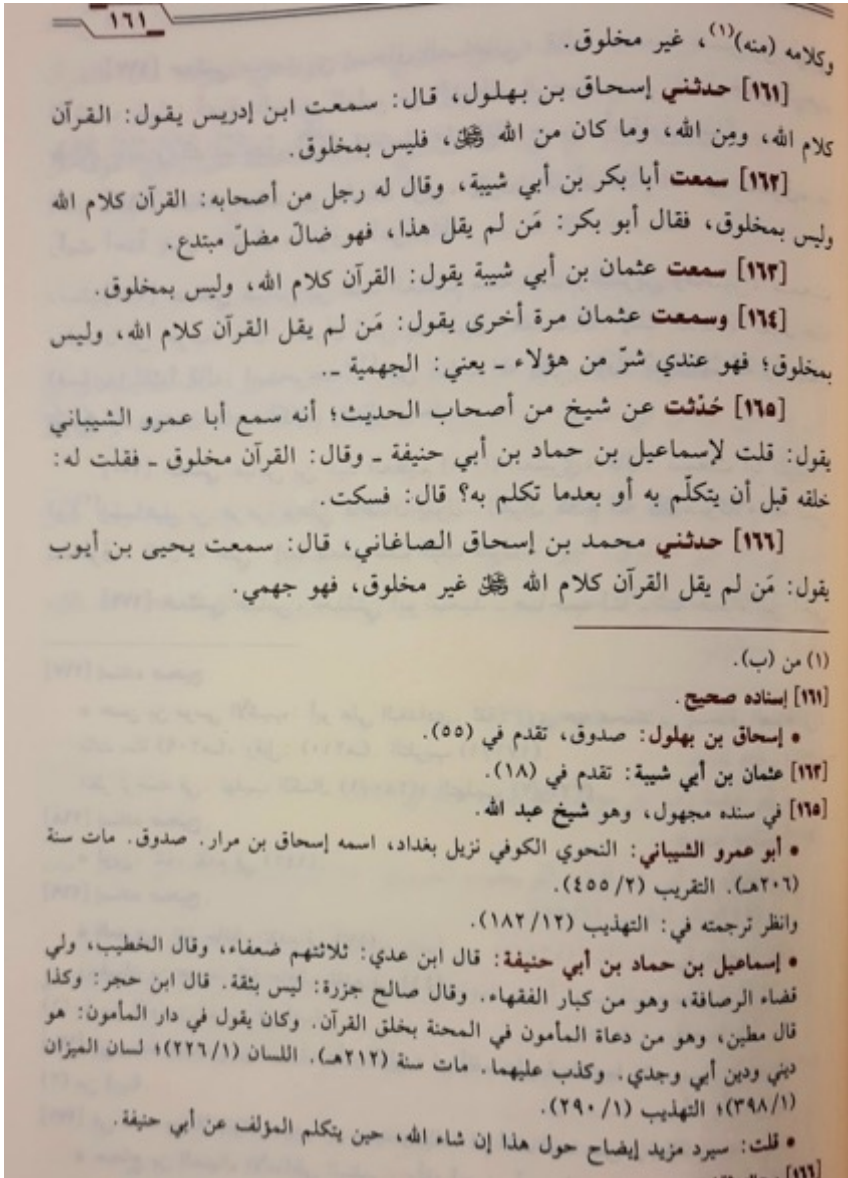 ١٦١
وكلامه (منه)(١)، غير مخلوق.
[١٦١] حدثني إسحاق بن بهلول، قال: سمعت ابن إدريس يقول: القرآن
كلام الله، ومِن الله، وما كان من الله ﷻ، فليس بمخلوق.
[١٦٢] سمعت أبا بكر بن أبي شيبة، وقال له رجل من أصحابه: القرآن كلام الله
وليس بمخلوق، فقال أبو بكر: مَن لم يقل هذا، فهو ضالّ مضلّ مبتدع.
[١٦٣] سمعت عثمان بن أبي شيبة يقول: القرآن كلام الله، وليس بمخلوق.
[١٦٤] وسمعت عثمان مرة أخرى يقول: مَن لم يقل القرآن كلام الله، وليس
بمخلوق؛ فهو عندي شرّ من هؤلاء ـ يعني: الجهمية ـ.
[١٦٥] حُدّثت عن شيخ من أصحاب الحديث؛ أنه سمع أبا عمرو الشيباني
يقول: قلت لإسماعيل بن حماد بن أبي حنيفة ـ وقال: القرآن مخلوق ـ فقلت له:
خلقه قبل أن يتكلّم به أو بعدما تكلم به؟ قال: فسكت.
[١٦٦] حدثني محمد بن إسحاق الصاغاني، قال: سمعت يحيى بن أيوب
يقول: مَن لم يقل القرآن كلام الله ﷻ غير مخلوق، فهو جهمي.
(١) من (ب).
[١٦١] إسناده صحيح.
• إسحاق بن بهلول: صدوق، تقدم في (٥٥).
[١٦٣] عثمان بن أبي شيبة: تقدم في (١٨).
[١٦٥] في سنده مجهول، وهو شيخ عبد الله.
• أبو عمرو الشيباني: النحوي الكوفي نزيل بغداد، اسمه إسحاق بن مرار. صدوق. مات سنة
(٢٠٦هـ). التقريب (٤٥٥/٢).
وانظر ترجمته في: التهذيب (١٨٢/١٢).
• إسماعيل بن حماد بن أبي حنيفة: قال ابن عدي: ثلاثتهم ضعفاء، وقال الخطيب، ولي
قضاء الرصافة، وهو من كبار الفقهاء. وقال صالح جزرة: ليس بثقة. قال ابن حجر: وكذا
قال مطين، وهو من دعاة المأمون في المحنة بخلق القرآن. وكان يقول في دار المأمون: هو
ديني ودين أبي وجدي. وكذب عليهما. مات سنة (٢١٢هـ). اللسان (٢٢٦/١)؛ لسان الميزان
(٣٩٨/١)؛ التهذيب (٢٩٠/١).
• قلت: سيرد مزيد إيضاح حول هذا إن شاء الله، حين يتكلم المؤلف عن أبي حنيفة.
[١٦٦]